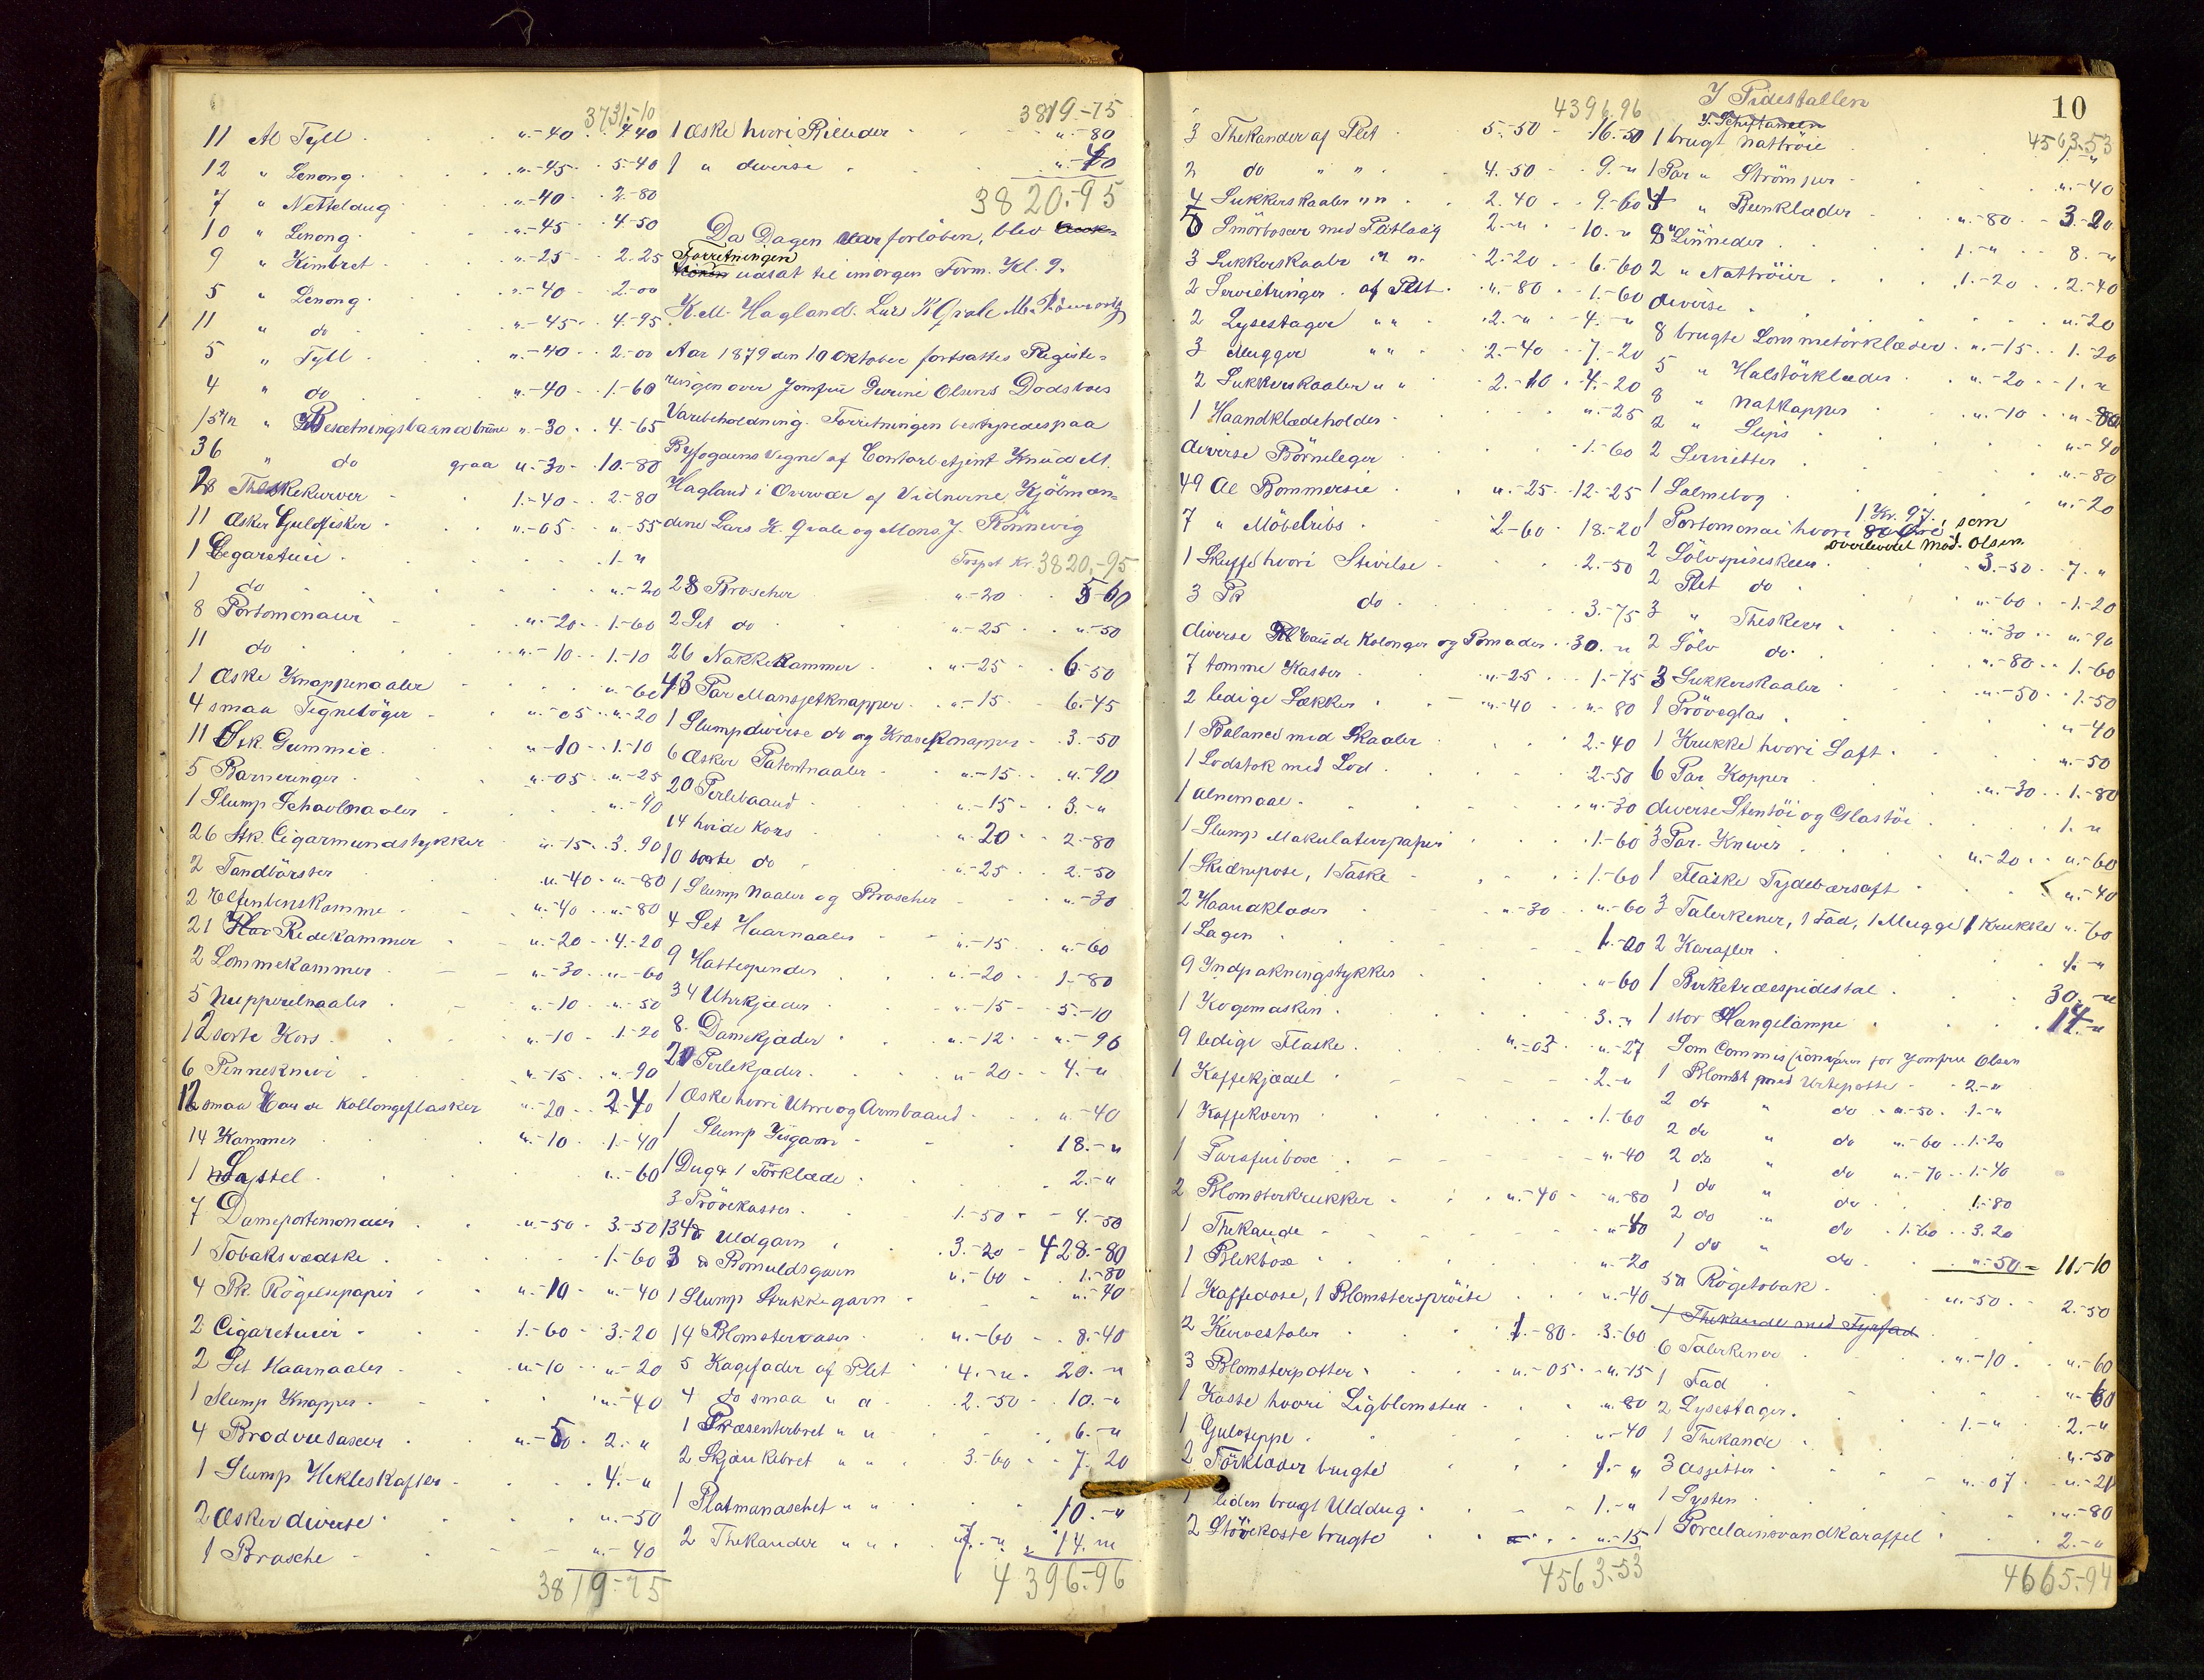 3731.-10
11 Al Tyll " - 40 4-40
12 " Lenong " - 45 5-40
7 " Netteldug " - 40 2-80
10 " Lenong " - 45 4-50
9 " Kimbret " - 25 2.25
5 " Lenong " - 40 2-00
11 " do " - 45 4-95
5 " Tyll " - 40 2-00
4 " do " - 40 1-60
15 1/2 " Besætningsbaand brune " - 30 4-65
36 " do graa " - 30 10-80
2 Theskekurver 1-40 2-80
11 Æsker Guldfisker " - 05 " - 55
1 Cegaretui 1 - "
1 do " - 20
8 Portomonaier " - 20 1-60
11 do " - 10 1-10
1 Æske Knappenaaler " - 60
4 smaa Tegnebøger " - 05 " - 20
11 Stk. Gummie " - 10 1-10
5 Barneringer " - 05 " - 25
1 Slump Schavlnaaler " - 40
26 Stk. Cigarmundstykker " - 15 3.90
2 Tandbørster " - 40 " - 80
2 Elfenbenskamme " - 40 " - 80
21 Redekammer " - 20 4-20
2 Lommekammer " - 30 " - 60
5 Nupperelnaaler " - 10 " - 50
12 sorte Kors " - 10 1-20
6 Penneknive " - 15 " - 90
12 smaa Eau de Kollongeflasker " - 20 2-40
14 Kammer " - 10 1-40
1 " - 60
7 Dameportemonaier " - 50 3-50
1 Tobaksvædske 1-60
4 Pk. Røgelsepapir " - 10 " - 40
2 Cigaretuier 1-60 3-20
2 Set Haarnaaler " - 10 " - 20
1 Slump Knapper " - 40
4 Broderisaxer " - 50 2 - "
1 Slump Hekleskafter 4 - "
2 Æsker diverse " - 50
1 Brosche " - 40
3819-75
3819.-75
1 Æske hvori Billeder " - 80
1 " diverse " - 40
3820.-95
Da Dagen var forløben, blev
Forretningen
udsat til imorgen Form. Kl. 9.
K. M. Hagland. Lars K Qvale M. Rönnevig
Aar 1879 den 10 Oktober fortsattes Registe-
ringen over Jomfru Gurine Olsens Dødsboes
Varebeholdning. Forretningen bestyredes paa
Byfogdens Vegne af Contorbetjent Knud M.
Hagland i Overvær af Vidnerne, Kjøbmæn-
dene Lars K. Qvale og Mons. J. Rønnevig
Trspt Kr. 3820.-95
28 Broscher " - 20 5-60
2 Set do " - 25 " - 50
26 Nakkekammer " - 25 6-50
43 Par Mansjetknapper " - 15 6-45
1 Slump diverse do og Kraveknapper 3-50
6 Æsker Patentnaaler " - 15 " - 90
20 Perlebaand " - 15 3 - "
14 hvide Kors " 20 2-80
10 sorte do " - 25 2-50
1 Slump Naaler og Broscher " - 30
4 Set Haarnaaler " - 15 " - 60
9 Hattespender " - 20 1-80
34 Uhrkjæder " - 15 5-10
8 Damekjæder " - 12 " - 96
20 Perlekjæder " - 20 4 - "
1 Æske hvori Uhre og Armbaand " - 40
1 Slump Zisgarn 18 - "
1 Dug & 1 Tørklæde 2 - "
3 Prøvekasser 1-50 4-50
134 ℔ Uldgarn 3-20 428-80
3 ℔ Bomuldsgarn " - 60 1-80
1 Slump Strikkegarn " - 40
14 Blomstervaser " - 60 8-40
5 Kagefader af Plet 4 - " 20 - "
4 do smaa " " 2-50 10 - "
1 Præsenterbret " " 6 - "
2 Skjænkebret " " 3-60 7-20
1 Platmenaschet " " 10 - "
2 Thekander " " 7 - " 14 - "
4396.-96
4396.96
3 Thekander af Plet 5-50 16-50
2 do " " 4.50 9 - "
4 Sukkerskaaler " " 2.40 9-60
5 Smörboxer med Platlaag 2 - " 10 - "
3 Sukkerskaaler " " 2-20 6-60
2 Servietringer af Plet " - 80 1-60
2 Lysestager " " 2 - " 4 - "
3 Mugger " " 2-40 7-20
2 Sukkerskaaler " " 2-10 4-20
1 Haandklædeholder " - 25
diverse Börneleger 1-60
49 Al Bommersie " - 25 12-25
7 " Möbelribs 2-60 18-20
1 Skuffe hvori Stivelse 2-50
3 Pk do 3-75
diverse Eau de Kolonger og Pomader 30 - "
7 tomme Kasser " - 25 1-75
2 ledige Sækker " - 40 " - 80
1 Balance med Skaaler 2-40
1 Lodstok med Lod 2-50
1 Alnemaal " - 30
1 Slump Makulaturpapir 1-60
1 Skidnpose, 1 Taske 1-60
2 Haandklæder " - 30 " - 60
1 Lagen 1-20
9 Indpakningstykker " - 60
1 Kogemaskin 3 - "
9 ledige Flaske " - 03 " - 27
1 Kaffekjædel 2 - "
1 Kaffekvern 1-60
1 Parafinboxe " - 40
2 Blomsterkrukker " - 40 " - 80
1 Thekande " - 40
1 Blekboxe " - 20
1 Kaffedose, 1 Blomstersprøite " - 40
2 Kurvestoler 1-80 3-60
3 Blomsterpotter " - 05 " - 15
1 Kasse hvori Ligblomster " - 80
1 Gulvteppe " - 40
2 Törklæder brugte 1 - "
1 liden brugt Ulddug 1 - "
2 Stövekoste brugte " - 15
4563.-53
10
I Pidestallen
4563.53
1 brugt Nattröie 1 - "
1 Par " Strömper " - 40
4 " Benklæder " - 80 3-20
8 " Linneder 1 - " 8 - "
2 " Nattröier 1-20 2-40
diverse " - 20
8 brugte Lommetörklæder " - 15 1-20
5 " Halstörklæder " - 20 1 - "
8 " Natkapper " - 10 " - 80
2 " Slips " - 40
2 Servietter " - 80
1 Salmebog " - 20
1 Kr. 97, som
1 Portomonai hvori 80 Øre
overleveret Mad. Olsen
2 Sölvspiseskeer 3-50 7 - "
2 Plet do " - 60 1-20
3 " Theskeer " - 30 " - 90
2 Sölv do " - 80 1-60
3 Sukkerskaaler " - 50 1-50
1 Pröveglas " - 40
1 Krukke hvori Saft " - 50
6 Par Kopper " - 30 1-80
diverse Stentöi og Glastöi 1 - "
3 Par Kniver " - 20 " - 60
1 Flaske Tydebærsaft " - 40
3 Talerkener, 1 Fad, 1 Mugge 1 Krukke " - 60
2 Karafler 1 - "
1 Birketræespidestal 30 - "
1 stor Hangelampe 14 - "
Som Commissionvarer for Jomfru Olsen
1 Blomst med Urtepotte 2 - "
2 do " do " - 50 1 - "
2 do " do " - 60 1-20
2 do " do " - 70 1-40
1 do " do 1-80
2 do " do 1-60 3.20
1 do " do " - 50 = 11-10
5 ℔ Rögetobak " - 50 2-50
1 Thekande med Fyrfad
6 Talerkener " - 10 " - 60
1 Fad " - 60
2 Lysestager 1 - " 2 - "
1 Thekande " - 50
3 Asjetter " - 07 " - 21
1 Lysten " - 80
1 Porcelainsvandkaraffel 2 - "
4665.-94